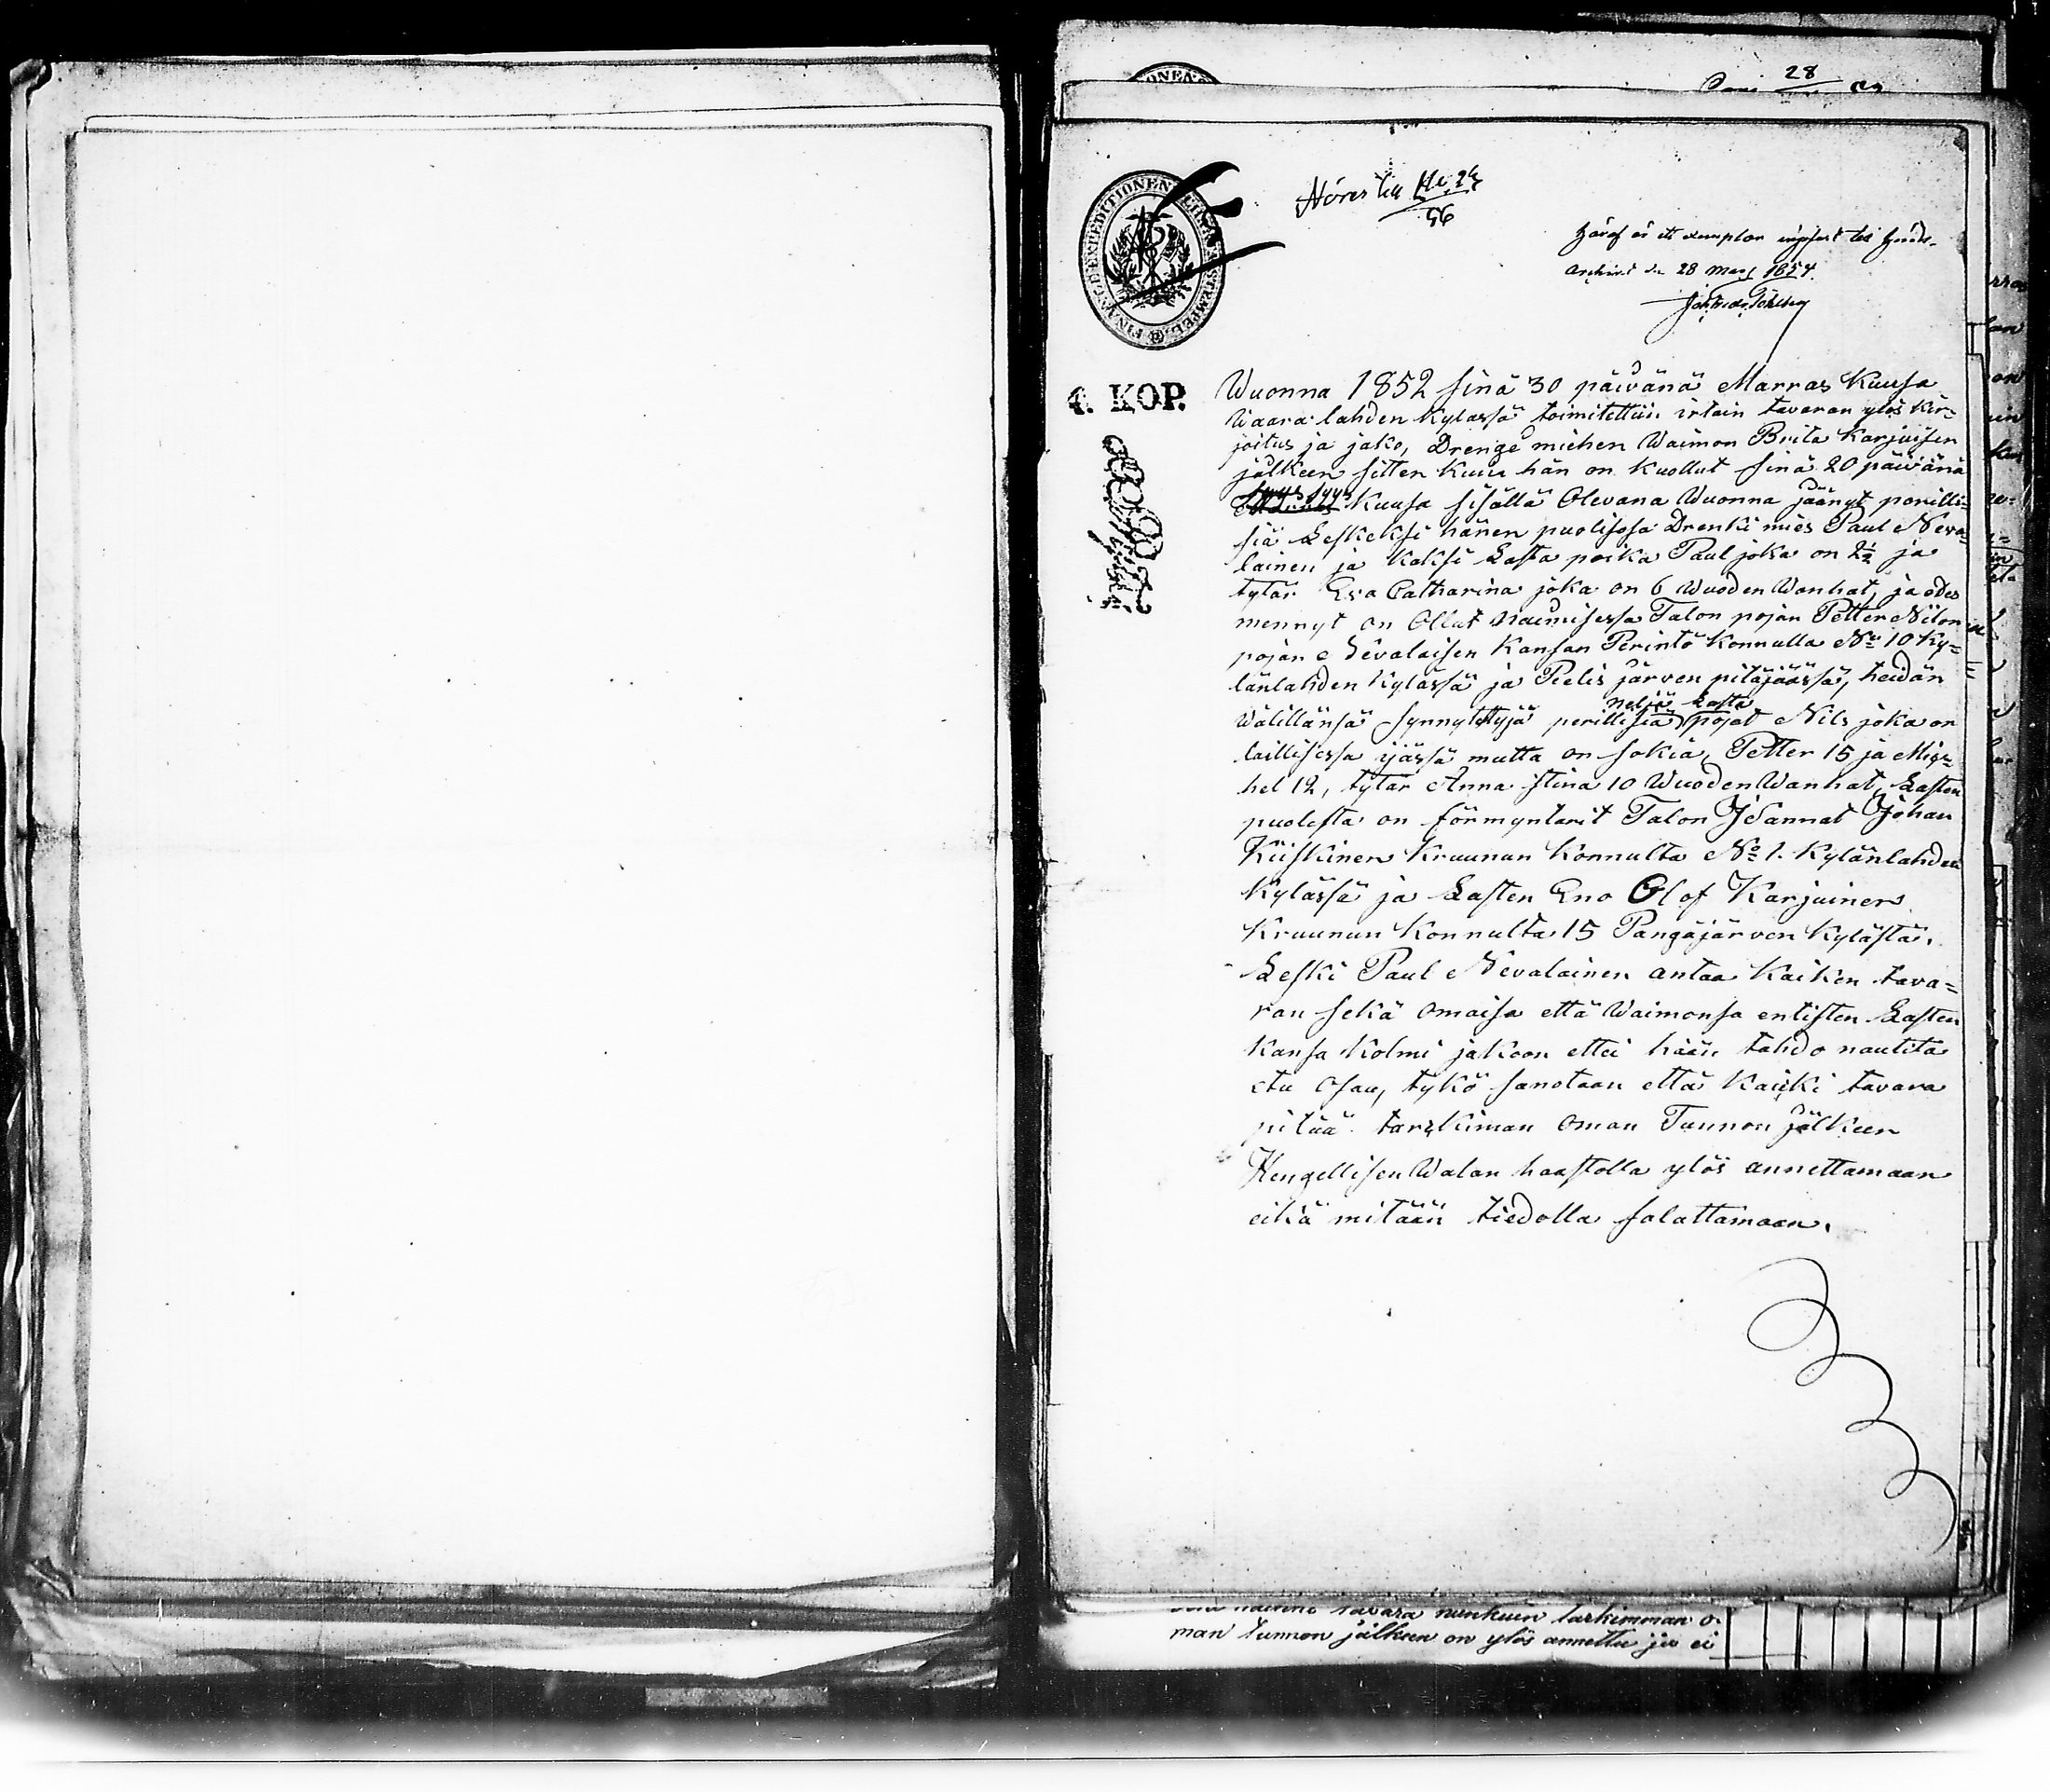 28
FINANCE EXPEDITIONENS CHARTÆ STEMPEL
Häraf är ett exemplar ingifvet till Härads-
archivet den 28 Mars 1854.
4. KOP.
Wuonna 1852 sinä 30 päivänä Marras Kuusa
Waara lahden Kylässä toimitettiin irtain tavaran ylös kir-
joitus ja jako, Drenge miehen Waimon Brita Karjuisen
jälkeen sitten kuin hän on kuollut sinä 20 päivänä
syys Kuusa sisällä Olevana Wuonna jäänyt perilli-
siä Leskeksi hänen puolisosa Drenki mies Paul Neva-
lainen ja kaksi Lasta poika Paul joka on 2½ ja
tytär Eva Catharina joka on 6 Wuoden Wanhat, ja edes
mennyt on Ollut Naimisessa Talon pojan Petter Nilson
pojan Nevalaisen Kansan Perintö Konnulla No 10 Ky=
länlahden Kylässä ja Pielis järven pitäjäässä, heidän
neljä Lasta
wälillänsä synnytettyjä perillisiä pojat Nils joka on
laillisessa ijässä mutta on sokia, Petter 15 ja Mig=
hel 12, tytär Anna Stina 10 Wuoden Wanhat, Lasten
puolesta on förmyntärit Talon Isännat Johan
Kiiskinen Kruunun Konnulta No 1. Kylänlahden
Kylässä ja Lasten Eno Olof Karjuinen
Kruunun Konnulta 15 Pangajärven Kylästä.
Leski Paul Nevalainen antaa Kaiken tava=
ran sekä omaisa että Waimonsa entisten Lasten
Kansa Kolmi jakoon ettei hään tahdo nautita
etu osaa, tykö sanotaan että Kaikki tavara
pitää tarkiman oman Tunnon jälkeen
Hengellisen Walan haastolla ylös annettamaan
eikä mitään tiedolla salattamaan.
tavara nunkuin tarkimman o-
man tunnon jälkeen on ylös annettu ja ei